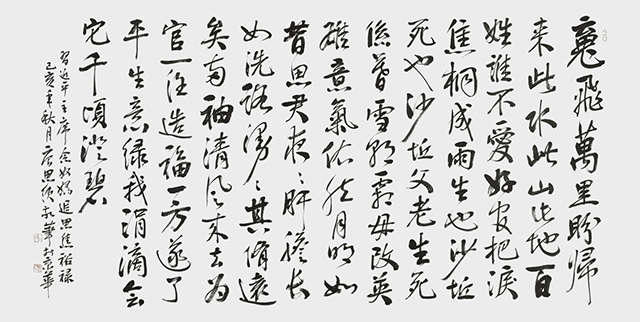 魂飛萬里盼歸
来此水此山此地百
姓誰不愛好官把淚
焦桐成雨生也沙坵
死也沙坵父老生死
係暮雪朝霜毋改英
雄意氣依然月明如
昔思君夜〻肝膽長
如洗路漫〻其脩遠
矣两袖清风来去为
官一任造福一方遂了
平生意绿我涓滴会
它千頃澄碧
習近平主席念奴嬌追思焦裕禄
己亥年秋月唐思源敬 於京華